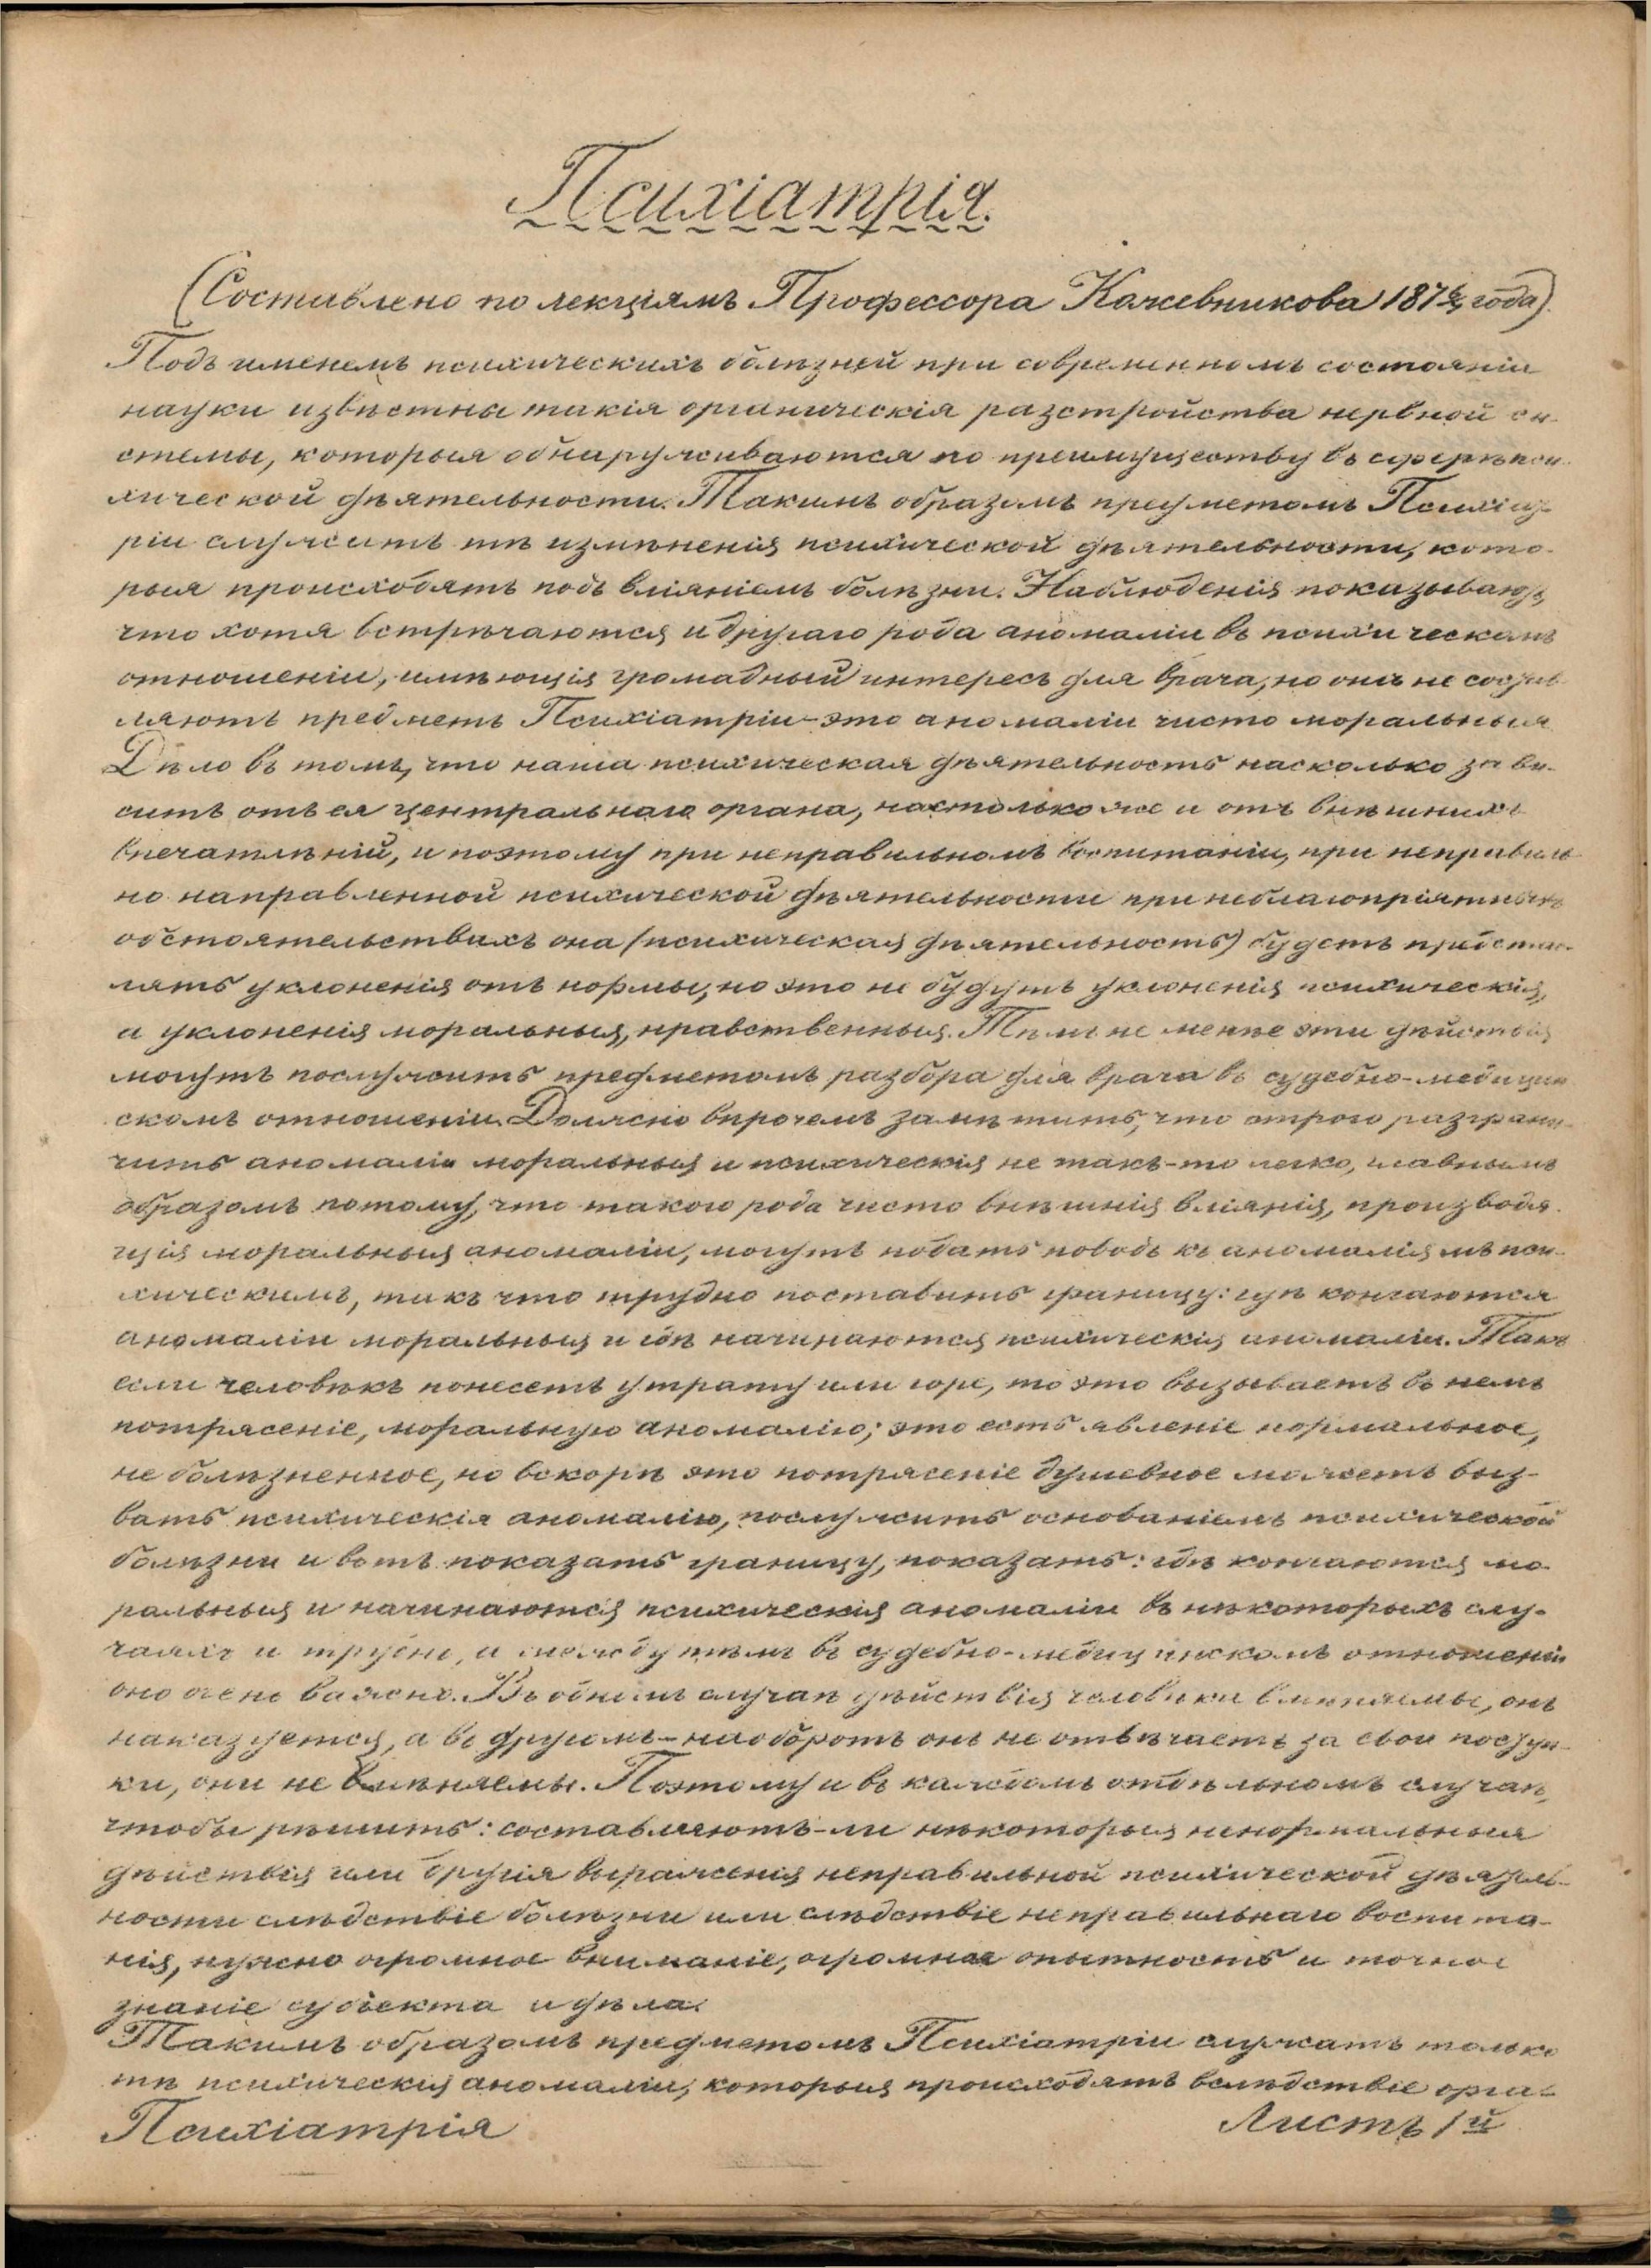 Психіатрія.
(Составлено по лекціямъ Профессора Кожевникова 187 6/7 года).
Подъ именемъ психическихъ болѣзней при современномъ состояніи
науки извѣстны такія органическія разстройства нервной си-
стемы, которыя обнаруживаются по преимуществу въ сферѣ пси-
хической дѣятельности. Такимъ образомъ предметомъ Психіат-
ріи служитъ тѣ измѣненія психической дѣятельности, кото-
рыя происходятъ подъ вліяніемъ болѣзни. Наблюденія показываютъ,
что хотя встрѣчаются и другаго рода аномаліи въ психическомъ
отношеніи, имѣющія громадный интересъ для врача, но онѣ не состав-
ляютъ предметъ Психіатріи - это аномаліи чисто моральныя
Дѣло въ томъ, что наша психическая дѣятельность насколько зави-
ситъ отъ ея центральнаго органа, настолько же и отъ внѣшнихъ
впечатлѣній, и поэтому при неправильномъ воспитаніи, при неправиль-
но направленной психической дѣятельности при неблагопріятныхъ
обстоятельствахъ она (психическая дѣятельность) будетъ представ-
лять уклоненія отъ нормы, но это не будутъ уклоненія психическія,
а уклоненія моральныя, нравственныя. Тѣмъ не менѣе эти дѣйствія
могутъ послужить предметомъ разбора для врача въ судебно-медицин
скомъ отношеніи. Должно впрочемъ замѣтить, что строго разграни-
чить аномаліи моральныя и психическія не такъ-то легко, главнымъ
образомъ потому, что такого рода чисто внѣшнія вліянія, производя-
щія моральныя аномаліи, могутъ подать поводъ къ аномаліямъ пси-
хическимъ, такъ что трудно поставить границу: гдѣ кончаются
аномаліи моральныя и гдѣ начинаются психическія аномаліи. Такъ
если человѣкъ понесетъ утрату или горе, то это вызываетъ въ немъ
потрясеніе, моральную аномалію; это есть явленіе нормальное,
не болѣзненное, но вскорѣ это потрясеніе душевное можетъ выз-
вать психическія аномалію, послужить основаніемъ психической
болѣзни и вотъ показать границу, показать: гдѣ кончаются мо-
ральныя и начинаются психическія аномаліи въ нѣкоторыхъ слу-
чаяхъ и трудно, а между тѣмъ въ судебно-медицинскомъ отношеніи
оно очень важно. Въ одномъ случаѣ дѣйствія человѣка вмѣняемы, онъ
наказуется, а въ другомъ - наоборотъ онъ не отвѣчаетъ за свои поступ-
ки, они не вмѣняемы. Поэтому и въ каждомъ отдѣльномъ случаѣ,
чтобы рѣшить: составляютъ-ли нѣкоторыя ненормальныя
дѣйствія или другія выраженія неправильной психической дѣятель-
ности слѣдствіе болѣзни или слѣдствіе неправильнаго воспита-
нія, нужно огромное вниманіе, огромная опытность и точное
знаніе субъекта и дѣла.
Такимъ образомъ предметомъ Психіатріи служатъ только
тѣ психическія аномаліи, которыя происходятъ вслѣдствіе орга-
Психіатрія
Листъ 1й